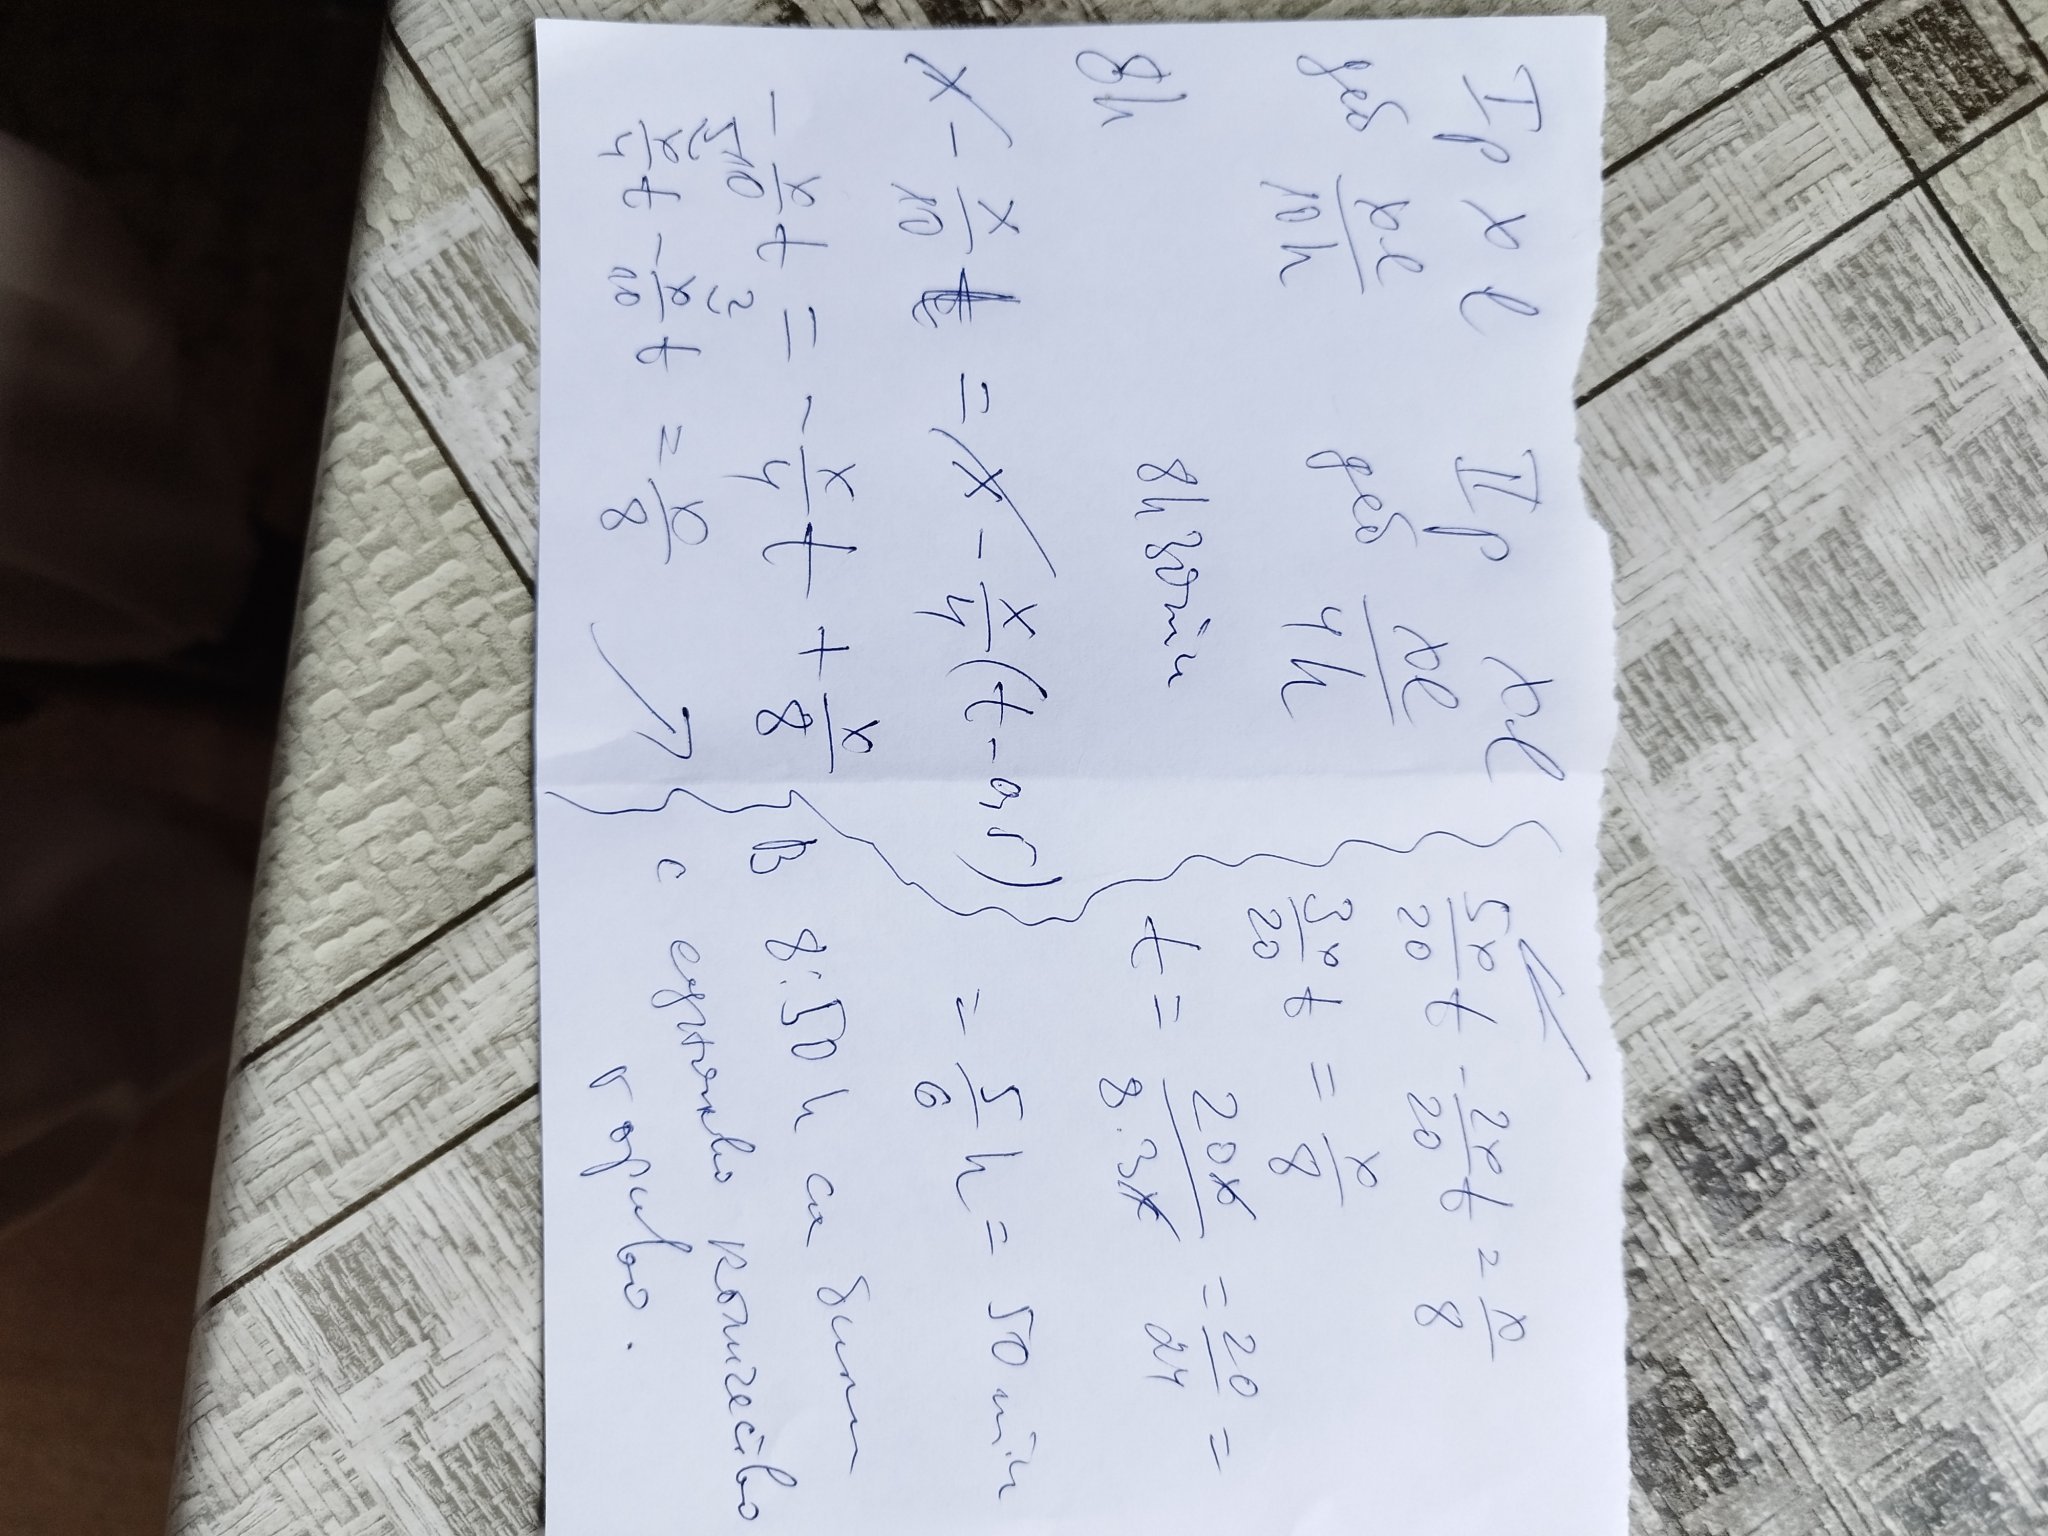 I р x l    II р x l
деб xl/10h    деб xl/4h
8h    8h 30min
x - x/10 t = x - x/4 (t - 0,5)
- x/10 t = - x/4 t + x/8
x/4 t - x/10 t = x/8
5x/20 t - 2x/20 t = x/8
3x/20 t = x/8
t = 20x/8.3x = 20/24 =
= 5/6 h = 50 min
В 8:50 h са били
с еднакво количество
гориво.